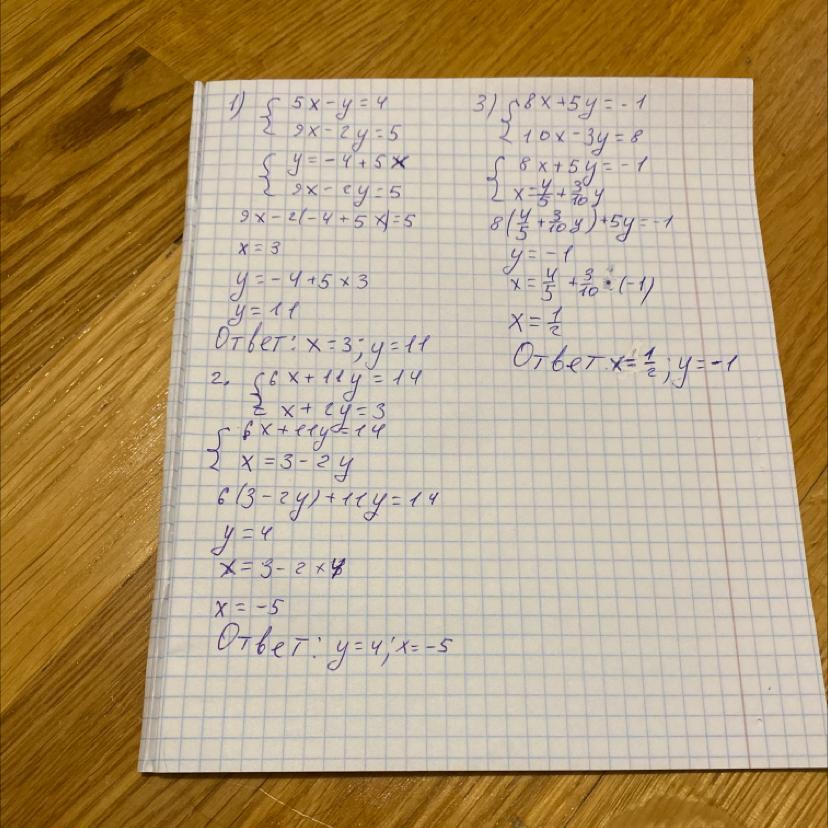 1) { 5x - y = 4
9x - 2y = 5
{ y = -4 + 5x
9x - 2y = 5
9x - 2(-4 + 5x) = 5
x = 3
y = -4 + 5 × 3
y = 11
Ответ: x = 3; y = 11
2. { 6x + 11y = 14
x + 2y = 3
{ 6x + 11y = 14
x = 3 - 2y
6(3 - 2y) + 11y = 14
y = 4
x = 3 - 2 × 4
x = -5
Ответ: y = 4; x = -5
3) { 8x + 5y = -1
10x - 3y = 8
{ 8x + 5y = -1
x = 4/5 + 3/10 y
8(4/5 + 3/10 y) + 5y = -1
y = -1
x = 4/5 + 3/10 · (-1)
x = 1/2
Ответ: x = 1/2; y = -1